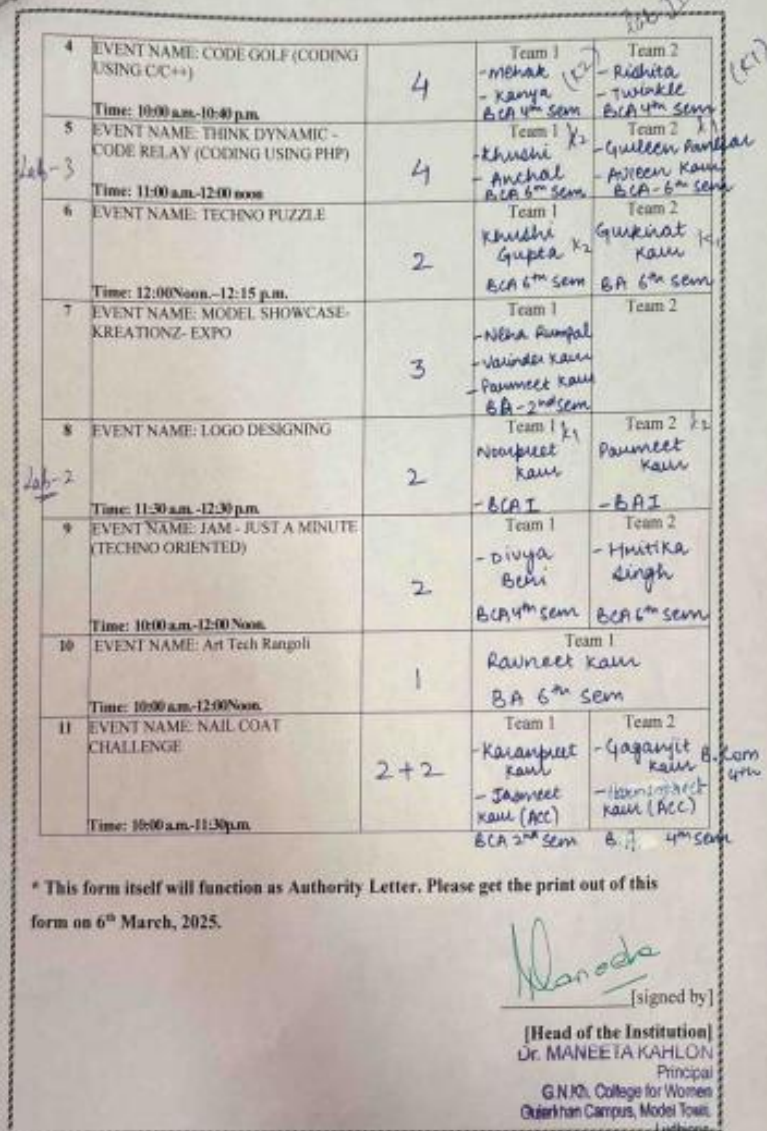 4 EVENT NAME: CODE GOLF (CODING USING C/C++)
Time: 10:00 a.m.-10:40 p.m.
4
Team 1 (K2)
- Mehak
- Kanya
BCA 4th sem
Team 2 (K1)
- Rishita
- Twinkle
BCA 4th sem
Lab-3
5 EVENT NAME: THINK DYNAMIC -
CODE RELAY (CODING USING PHP)
Time: 11:00 a.m.-12:00 noon
4
Team 1 K2
- Khushi
- Anchal
BCA 6th sem
Team 2 K1
- Gurleen
- Avleen Kaur
BCA-6th sem
6 EVENT NAME: TECHNO PUZZLE
Time: 12:00Noon.–12:15 p.m.
2
Team 1
Khushi
Gupta K2
BCA 6th sem
Team 2
Gurkirat
Kaur K1
BA 6th sem
7 EVENT NAME: MODEL SHOWCASE-
KREATIONZ- EXPO
3
Team 1
- Neha Rumpal
- Varinder Kaur
- Parmeet Kaur
BA-2nd sem
Team 2
Lab-2
8 EVENT NAME: LOGO DESIGNING
Time: 11:30 a.m. -12:30 p.m.
2
Team 1 K1
Noorpreet
Kaur
- BCA I
Team 2 K2
Parmeet
Kaur
- BA I
9 EVENT NAME: JAM - JUST A MINUTE
(TECHNO ORIENTED)
Time: 10:00 a.m.-12:00 Noon.
2
Team 1
- Divya
Beri
BCA 4th sem
Team 2
- Hritika
Singh
BCA 6th sem
10 EVENT NAME: Art Tech Rangoli
Time: 10:00 a.m.-12:00Noon.
1
Team 1
Ravneet Kaur
BA 6th sem
11 EVENT NAME: NAIL COAT
CHALLENGE
Time: 10:00 a.m.-11:30p.m.
2+2
Team 1
- Karanpreet
Kaur
- Jasmeet
Kaur (Acc)
BCA 2nd sem
Team 2
- Gaganjit
Kaur B.Com 4th
Kaur (Acc)
B.A 4th sem
* This form itself will function as Authority Letter. Please get the print out of this
form on 6th March, 2025.
[signed by]
[Head of the Institution]
Dr. MANEETA KAHLON
Principal
G.N.Kh. College for Women
Gujarkhan Campus, Model Town,
Ludhiana